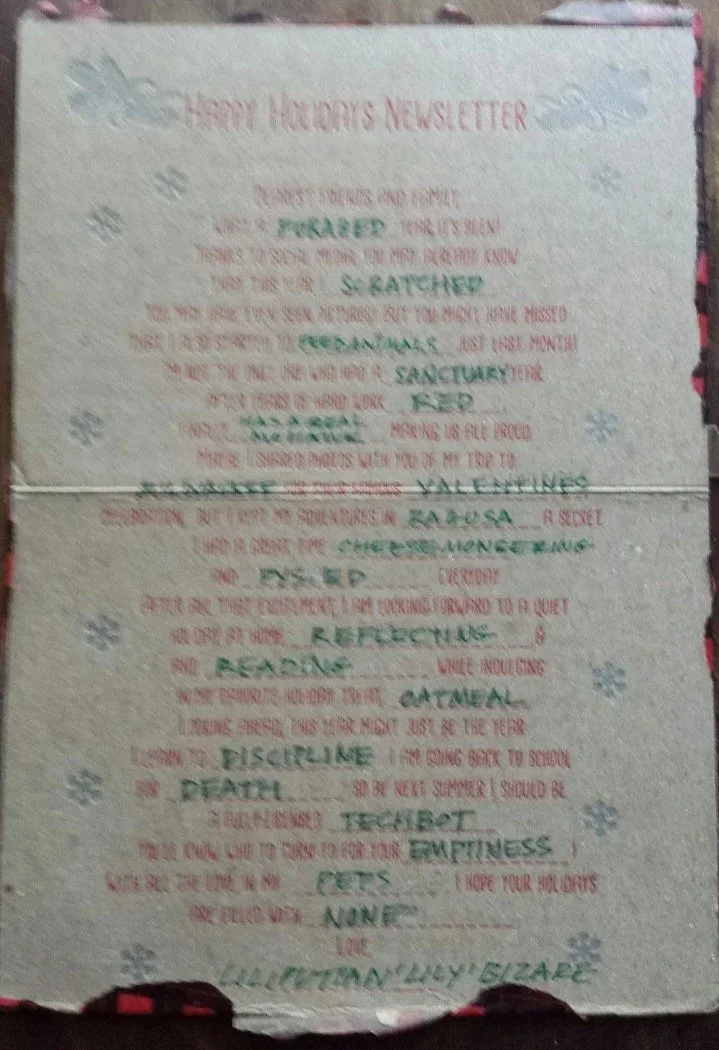 HAPPY HOLIDAYS NEWSLETTER
DEAREST FRIENDS AND FAMILY,
WHAT A YEAR IT'S BEEN!
THANKS TO SOCIAL MEDIA, YOU MAY ALREADY KNOW
THAT THIS YEAR I SCRATCHED
YOU MAY HAVE EVEN SEEN PICTURES! BUT YOU MIGHT HAVE MISSED
THAT I ALSO STARTED TO FEED ANIMALS JUST LAST MONTH!
I'M NOT THE ONLY ONE WHO HAD A SANCTUARY YEAR.
AFTER YEARS OF HARD WORK, RED
FINALLY HAS A REAL
MOHAWK MAKING US ALL PROUD.
MAYBE I SHARED PHOTOS WITH YOU OF MY TRIP TO
FOR THEIR FAMOUS VALENTINES
CELEBRATION, BUT I KEPT MY ADVENTURES IN A SECRET.
I HAD A GREAT TIME CHEESEMONGERING
AND EVERYDAY.
AFTER ALL THAT EXCITEMENT, I AM LOOKING FORWARD TO A QUIET
HOLIDAY AT HOME REFLECTING &
AND READING WHILE INDULGING
IN MY FAVORITE HOLIDAY TREAT, OATMEAL.
LOOKING AHEAD, THIS YEAR MIGHT JUST BE THE YEAR
I LEARN TO DISCIPLINE I AM GOING BACK TO SCHOOL
FOR DEATH SO BY NEXT SUMMER I SHOULD BE
A FULLY-LICENSED TECHBOT
YOU'LL KNOW WHO TO TURN TO FOR YOUR EMPTINESS !
WITH ALL THE LOVE IN MY PETS I HOPE YOUR HOLIDAYS
ARE FILLED WITH NONE
LOVE,
LILLIPUTIAN 'LILY' BIZARE